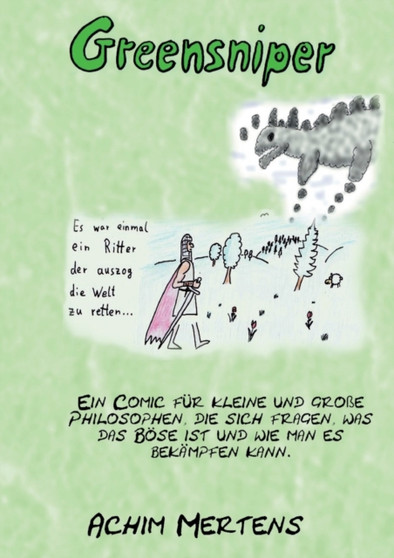 Greensniper
Es war einmal
ein Ritter
der auszog
die Welt
zu retten...
Ein Comic für kleine und große
Philosophen, die sich fragen, was
das Böse ist und wie man es
bekämpfen kann.
Achim Mertens